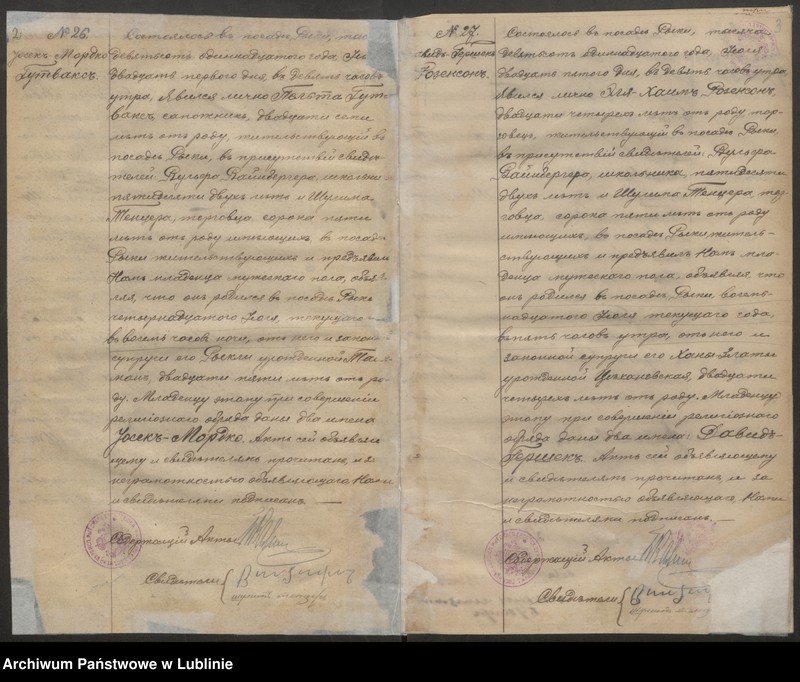 № 26.
Іосекъ-Мордко
Гутваксъ.
Состоялось въ посадѣ Рыки, тыс
девятьсотъ одиннадцатого года, Ію
двадцать перваго дня, въ девять часовъ
утра, явился лично Гут
ваксъ сапожникъ, двадцати семи
лѣтъ отъ роду, жительствующій въ
посадѣ Рыки, въ присутствіи свидѣ
телей: Вайнбергера, школьни
пятидесяти двухъ лѣтъ и Шулима
Тенцера, торговца, сорока пяти
лѣтъ отъ роду имѣющихъ, въ посадѣ
Рыки жительствующихъ и предъявилъ
Намъ младенца мужескаго пола, объя
вляя, что онъ родился въ посадѣ Рыки
четырнадцатого Іюля, текущаго
въ восемь часовъ ночи, отъ него и закон
супруги его Рыкли урожденной
манъ, двадцати пяти лѣтъ отъ ро
ду. Младенцу этому при совершеніи
религіознаго обряда даны два имена
Іосекъ-Мордко. Актъ сей объявляю
щему и свидѣтелямъ прочитанъ, и за
неграмотностью объявляющаго, Нами
и свидѣтелями подписанъ. —
Содержащій Акты
Свидѣтели {
№ 27.
Давидъ-Гершекъ
Розенсонъ.
Состоялось въ посадѣ Рыки, тысяча
девятьсотъ одиннадцатого года, Іюля
двадцать пятаго дня, въ девять часовъ утра,
явился лично Хаимъ Розенсонъ,
двадцати четырехъ лѣтъ отъ роду тор
говецъ, жительствующій въ посадѣ Рыки,
въ присутствіи свидѣтелей:
Вайнбергера, школьника, пятидесяти
двухъ лѣтъ и Шулима Тенцера, тор
говца, сорока пяти лѣтъ отъ роду
имѣющихъ, въ посадѣ Рыки житель-
ствующихъ и предъявилъ Намъ мла
денца мужескаго пола, объявляя, что
онъ родился въ посадѣ Рыки восем
надцатого Іюля текущаго года,
въ пять часовъ утра, отъ него и
законной супруги его Ханы-Златы
урожденной Цѣхановская, двадцати
четырехъ лѣтъ отъ роду. Младенцу
этому при совершеніи религіознаго
обряда даны два имена: Давидъ-
Гершекъ. Актъ сей объявляющему
и свидѣтелямъ прочитанъ, и за
неграмотностью объявляющаго, Нами
и свидѣтелями подписанъ. —
Содержащій Акты
Свидѣтели {
Archiwum Państwowe w Lublinie